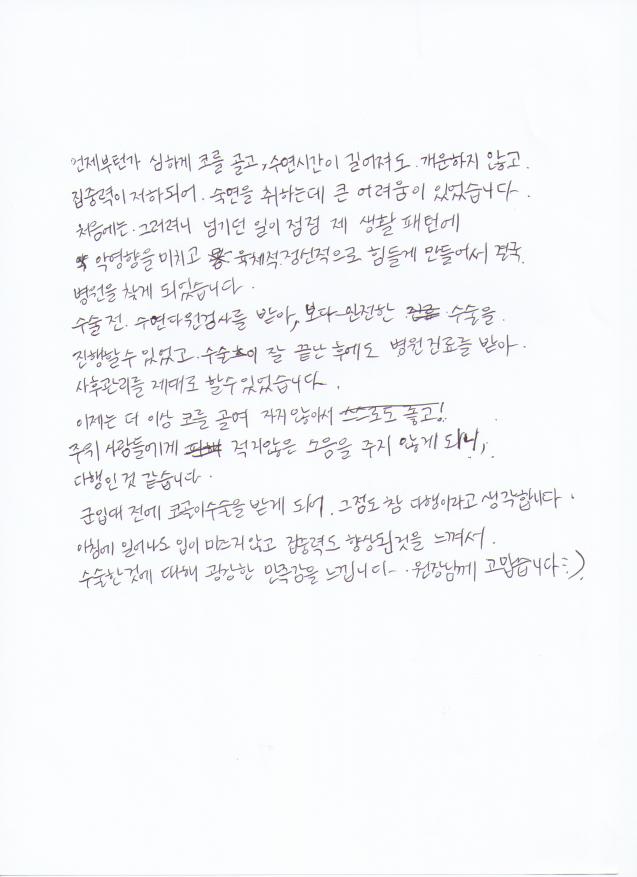 언제부턴가 심하게 코를 골고, 수면시간이 길어져도 개운하지 않고.
집중력이 저하되어. 숙면을 취하는데 큰 어려움이 있었습니다.
처음에는. 그러려니 넘기던 일이 점점 제 생활 패턴에
악영향을 미치고 육체적.정신적으로 힘들게 만들어서 결국
병원을 찾게 되었습니다.
수술 전. 수면다원검사를 받아, 보다 안전한 수술을
진행할 수 있었고. 수술이 잘 끝난 후에도 병원진료를 받아.
사후관리를 제대로 할 수 있었습니다.
이제는 더 이상 코를 골며 자지 않아서 스스로도 좋고!
주위 사람들에게 적지않은 소음을 주지 않게 되니,
다행인 것 같습니다.
군입대 전에 코골이수술을 받게 되어. 그점도 참 다행이라고 생각합니다.
아침에 일어나도 입이 마르지 않고 집중력도 향상된것을 느껴서.
수술한것에 대해 굉장한 만족감을 느낍니다. 원장님께 고맙습니다:)